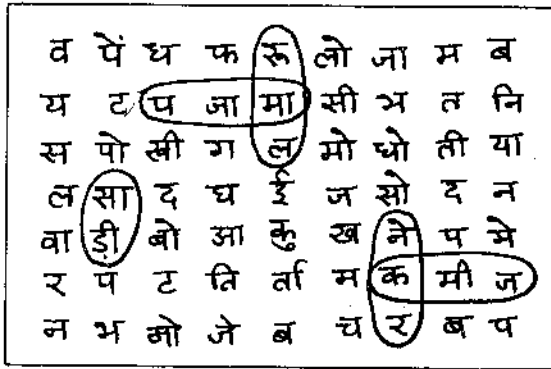 व पें ध फ रू लो जा म ब
य ट प जा मा सी भ त नि
स पो खी ग ल मो धो ती या
ल सा द घ ई ज सो द न
वा ड़ी बो आ कु ख ने प मे
र प ट ति र्ता म क मी ज
न भ ओ जे ब च र ब प